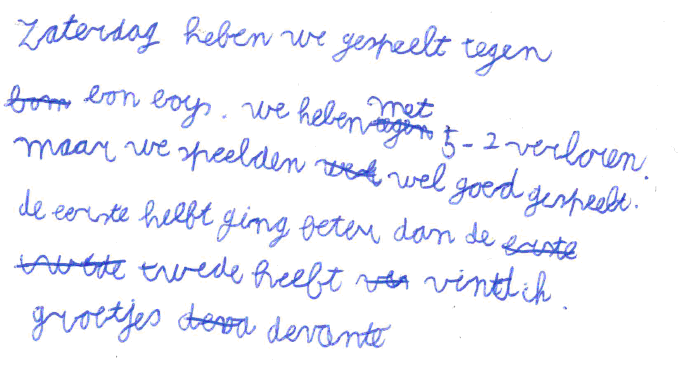 zaterdag heben we gespeelt tegen
bon boys. we heben met 5-2 verloren.
maar we speelden wel goed gespeelt.
de eerste helft ging beter dan de
twede heeft vintt ik.
groetjes devante